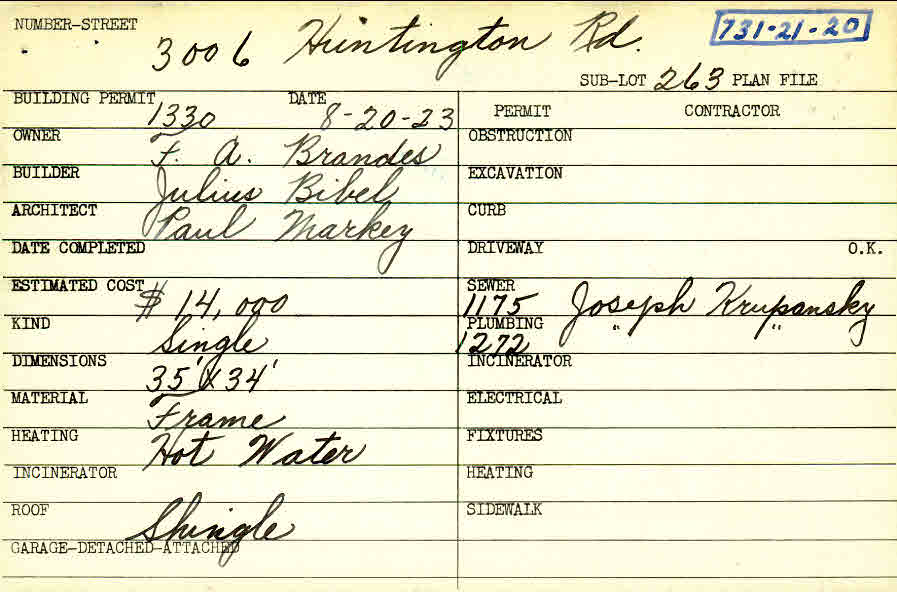 NUMBER-STREET 3006 Huntington Rd. 731-21-20
SUB-LOT 263 PLAN FILE
BUILDING PERMIT 1330 DATE 8-20-23 PERMIT CONTRACTOR
OWNER F. A. Brandes OBSTRUCTION
BUILDER Julius Bibel EXCAVATION
ARCHITECT Paul Markey CURB
DATE COMPLETED DRIVEWAY O.K.
ESTIMATED COST $14,000 SEWER 1175 Joseph Krupansky
KIND Single PLUMBING 1272 " "
DIMENSIONS 35' X 34' INCINERATOR
MATERIAL Frame ELECTRICAL
HEATING Hot Water FIXTURES
INCINERATOR HEATING
ROOF Shingle SIDEWALK
GARAGE-DETACHED-ATTACHED